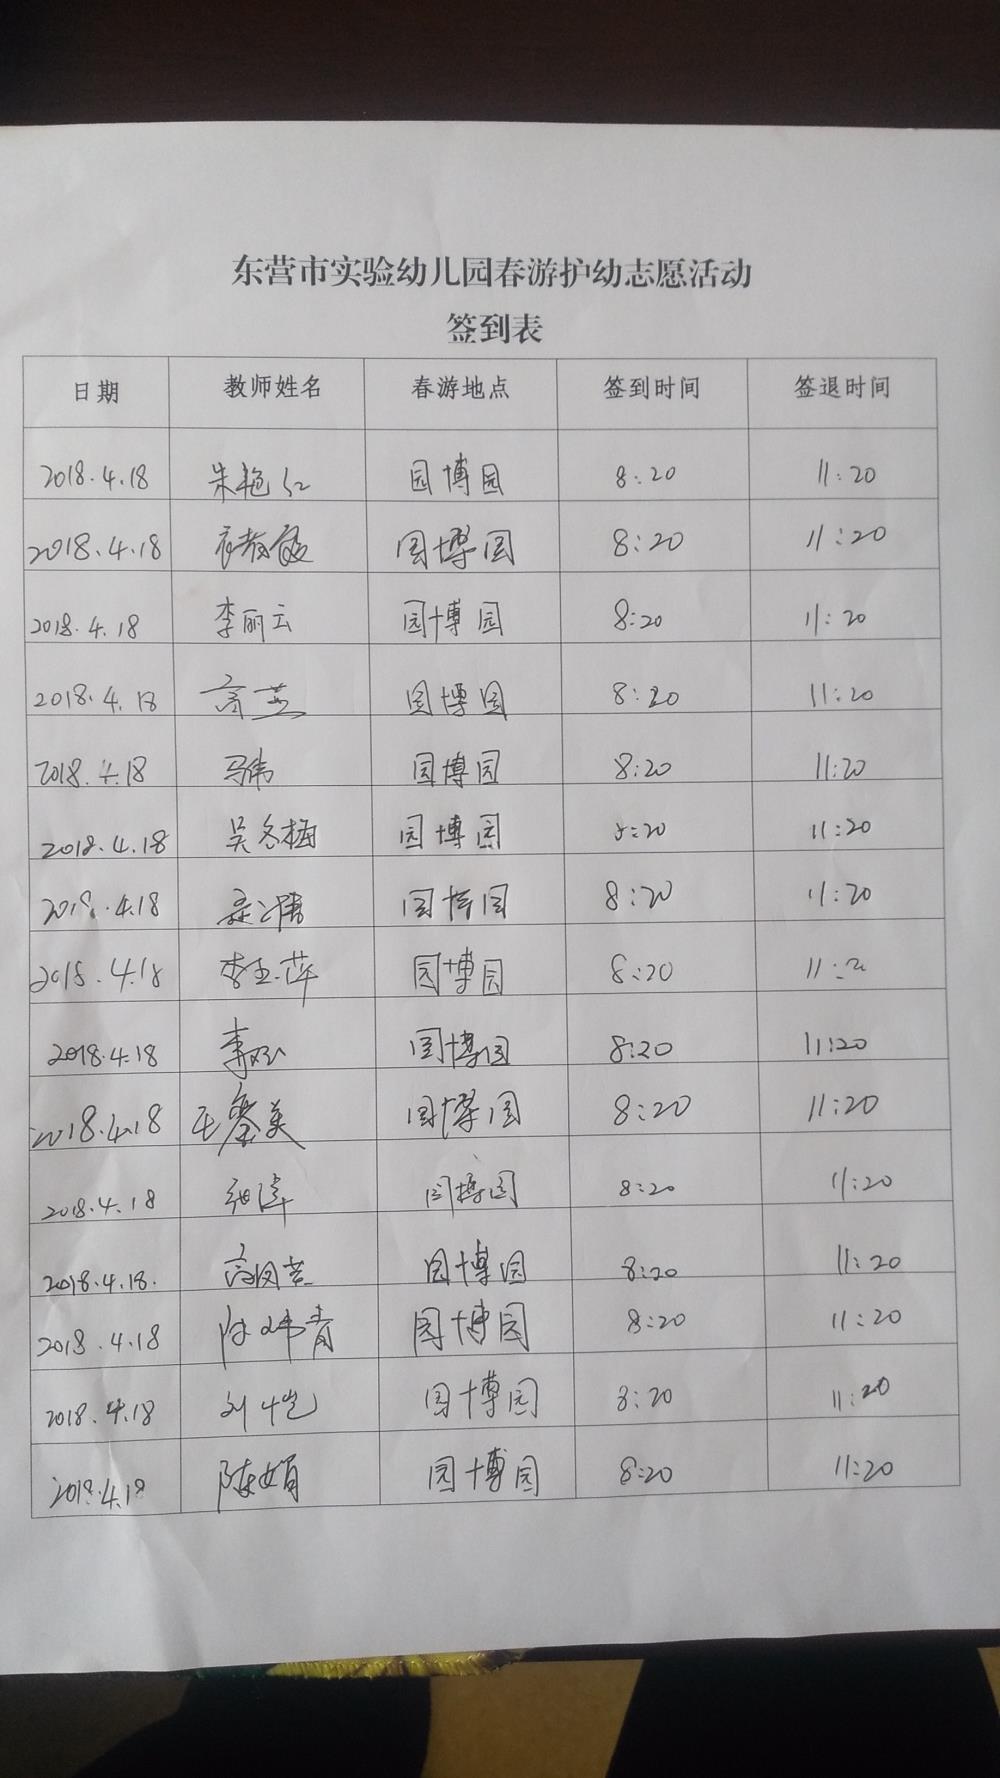 东营市实验幼儿园春游护幼志愿活动
签到表
日期 教师姓名 春游地点 签到时间 签退时间
2018.4.18 朱艳红 园博园 8:20 11:20
2018.4.18 园博园 8:20 11:20
2018.4.18 李丽云 园博园 8:20 11:20
2018.4.18 高燕 园博园 8:20 11:20
2018.4.18 马伟 园博园 8:20 11:20
2018.4.18 吴冬梅 园博园 8:20 11:20
2018.4.18 园博园 8:20 11:20
2018.4.18 李玉萍 园博园 8:20 11:20
2018.4.18 园博园 8:20 11:20
2018.4.18 园博园 8:20 11:20
2018.4.18 园博园 8:20 11:20
2018.4.18. 园博园 8:20 11:20
2018.4.18 园博园 8:20 11:20
2018.4.18 刘恺 园博园 8:20 11:20
2018.4.18 陈娟 园博园 8:20 11:20